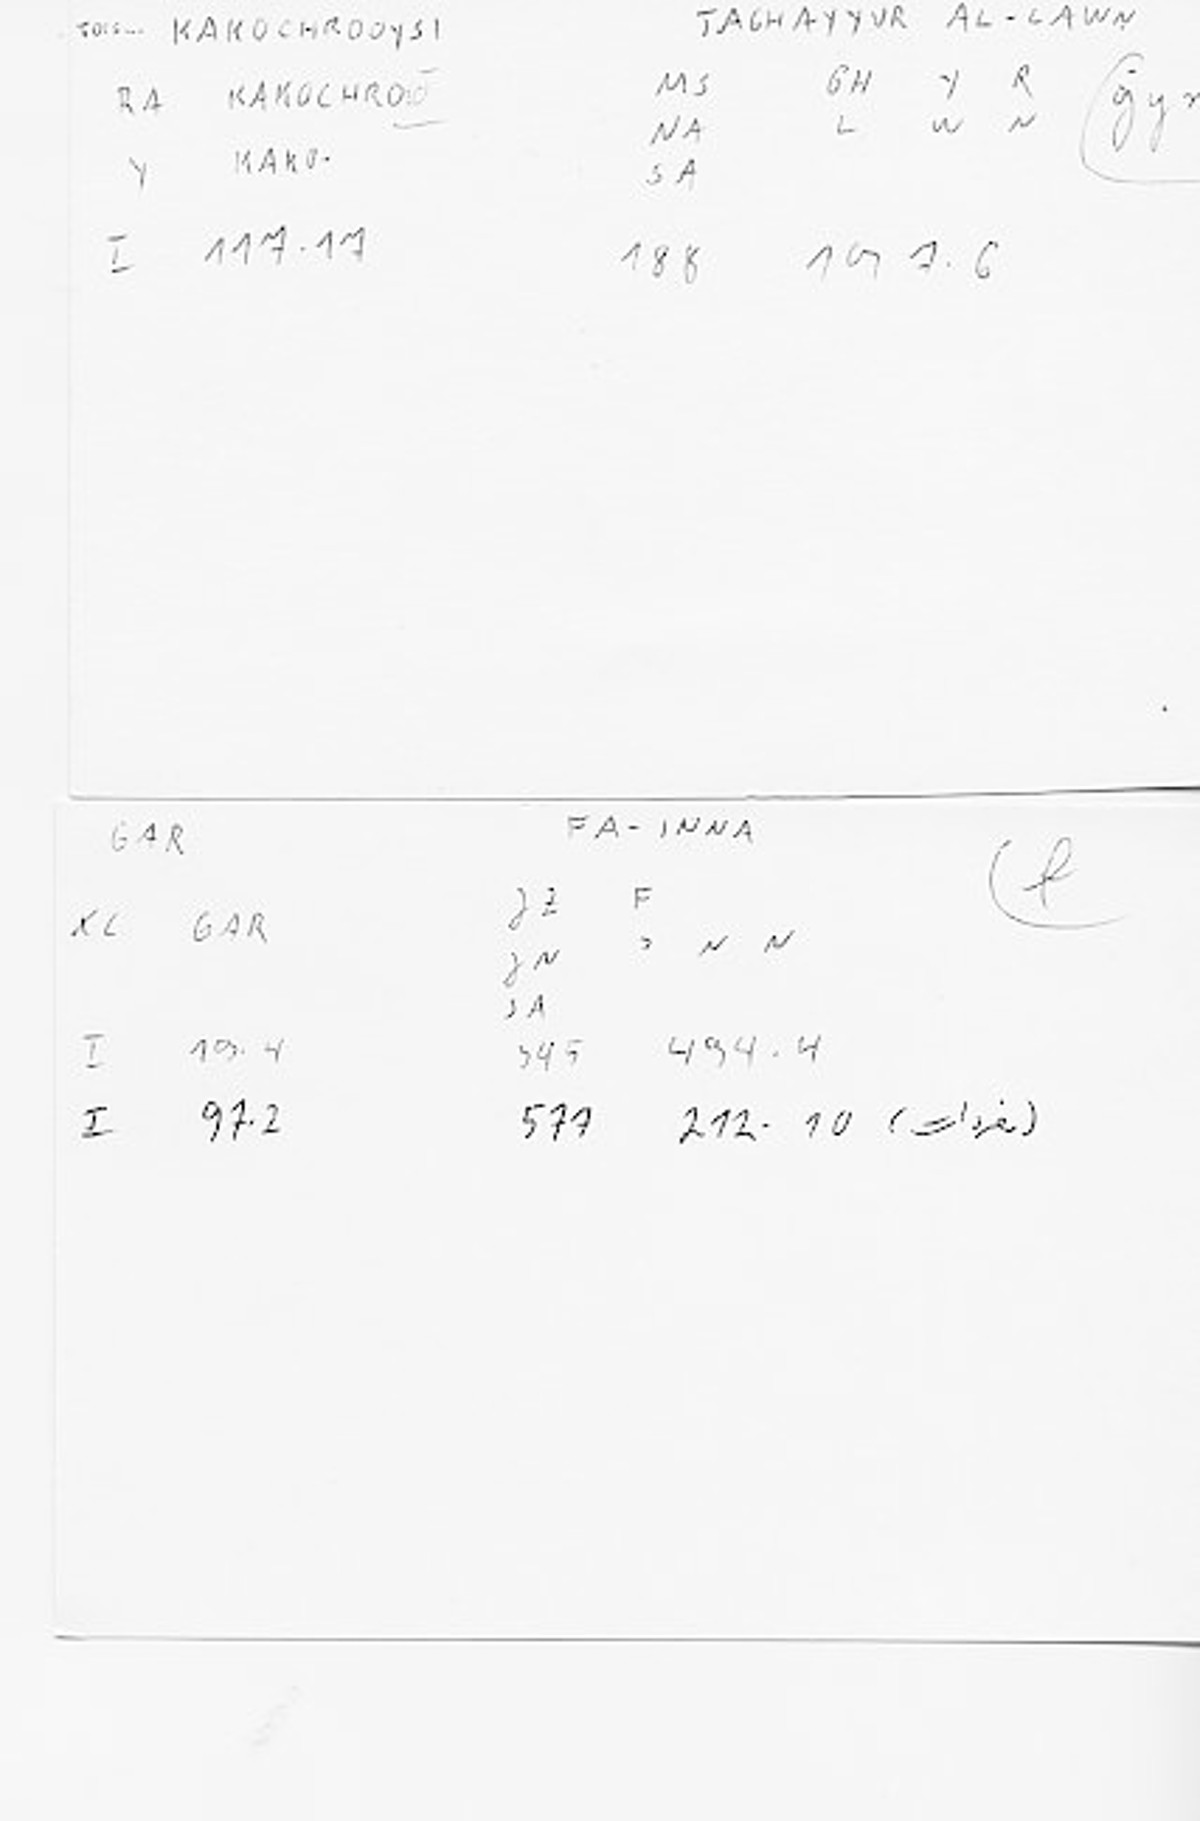 TOIS... KAKOCHROOYSI TAGHAYYUR AL-LAWN
RA KAKOCHROO MS GH Y R
NA L W N
Y KAKO- SA
I 117.17 188 197.6
GAR FA-INNA
XC GAR JZ F
JN ʾ N N
SA
I 19.4 345 494.4
I 97.2 577 212.10